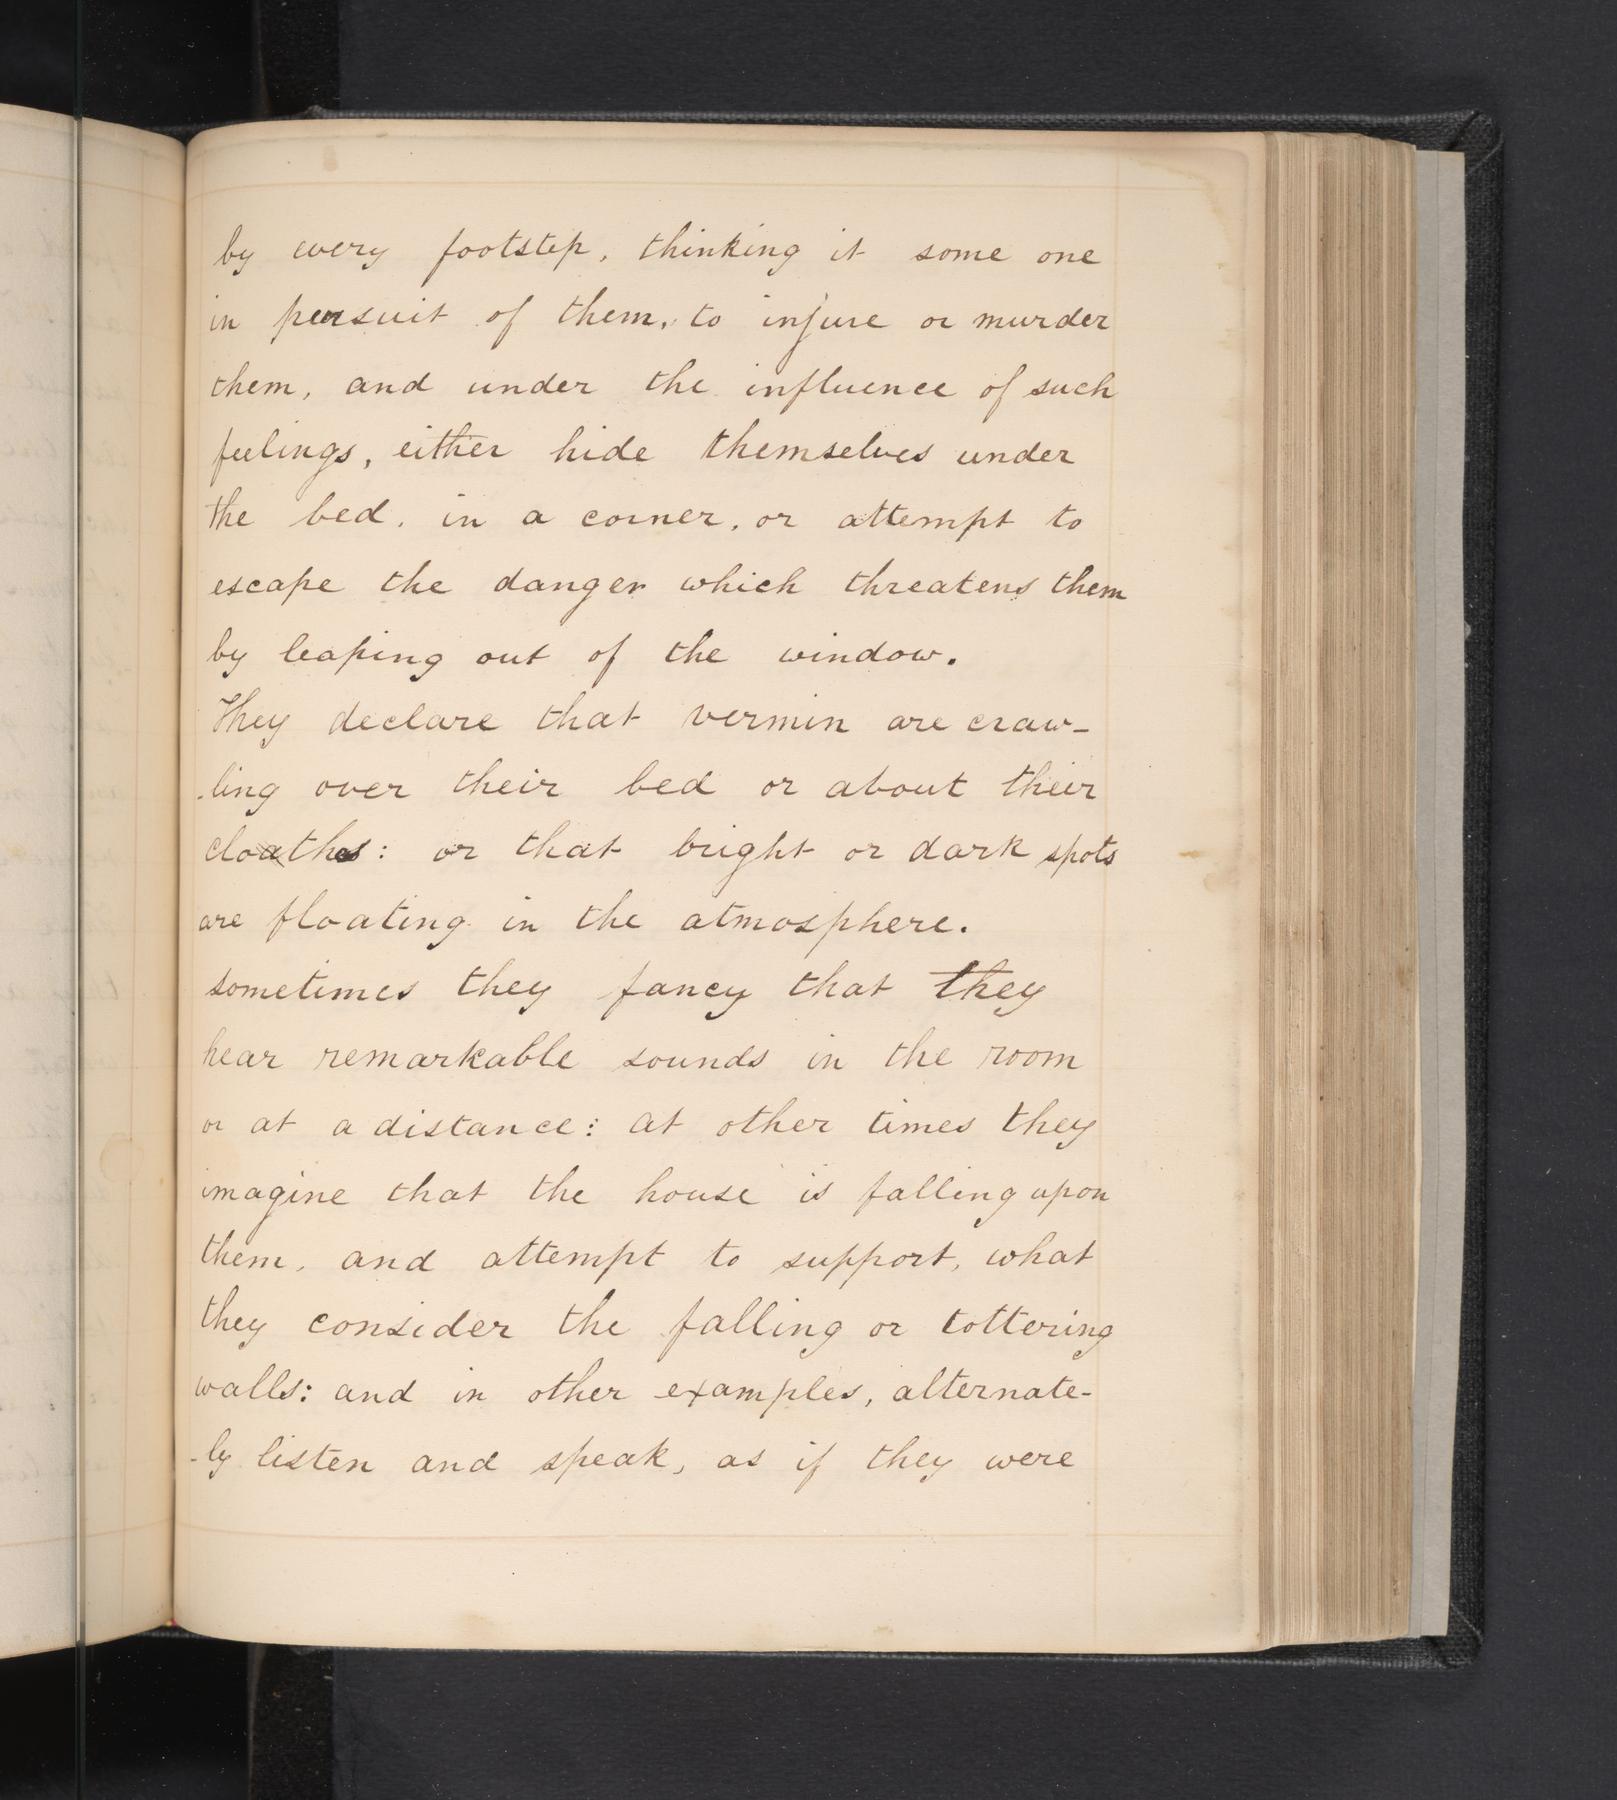 by every footstep, thinking it some one
in pursuit of them, to injure or murder
them, and under the influence of such
feelings, either hide themselves under
the bed, in a corner, or attempt to
escape the danger which threatens them
by leaping out of the window.
They declare that vermin are craw-
-ling over their bed or about their
cloathes: or that bright or dark spots
are floating in the atmosphere.
sometimes they fancy that they
hear remarkable sounds in the room
or at a distance: at other times they
imagine that the house is falling upon
them, and attempt to support, what
they consider the falling or tottering
walls: and in other examples, alternate-
-ly listen and speak, as if they were